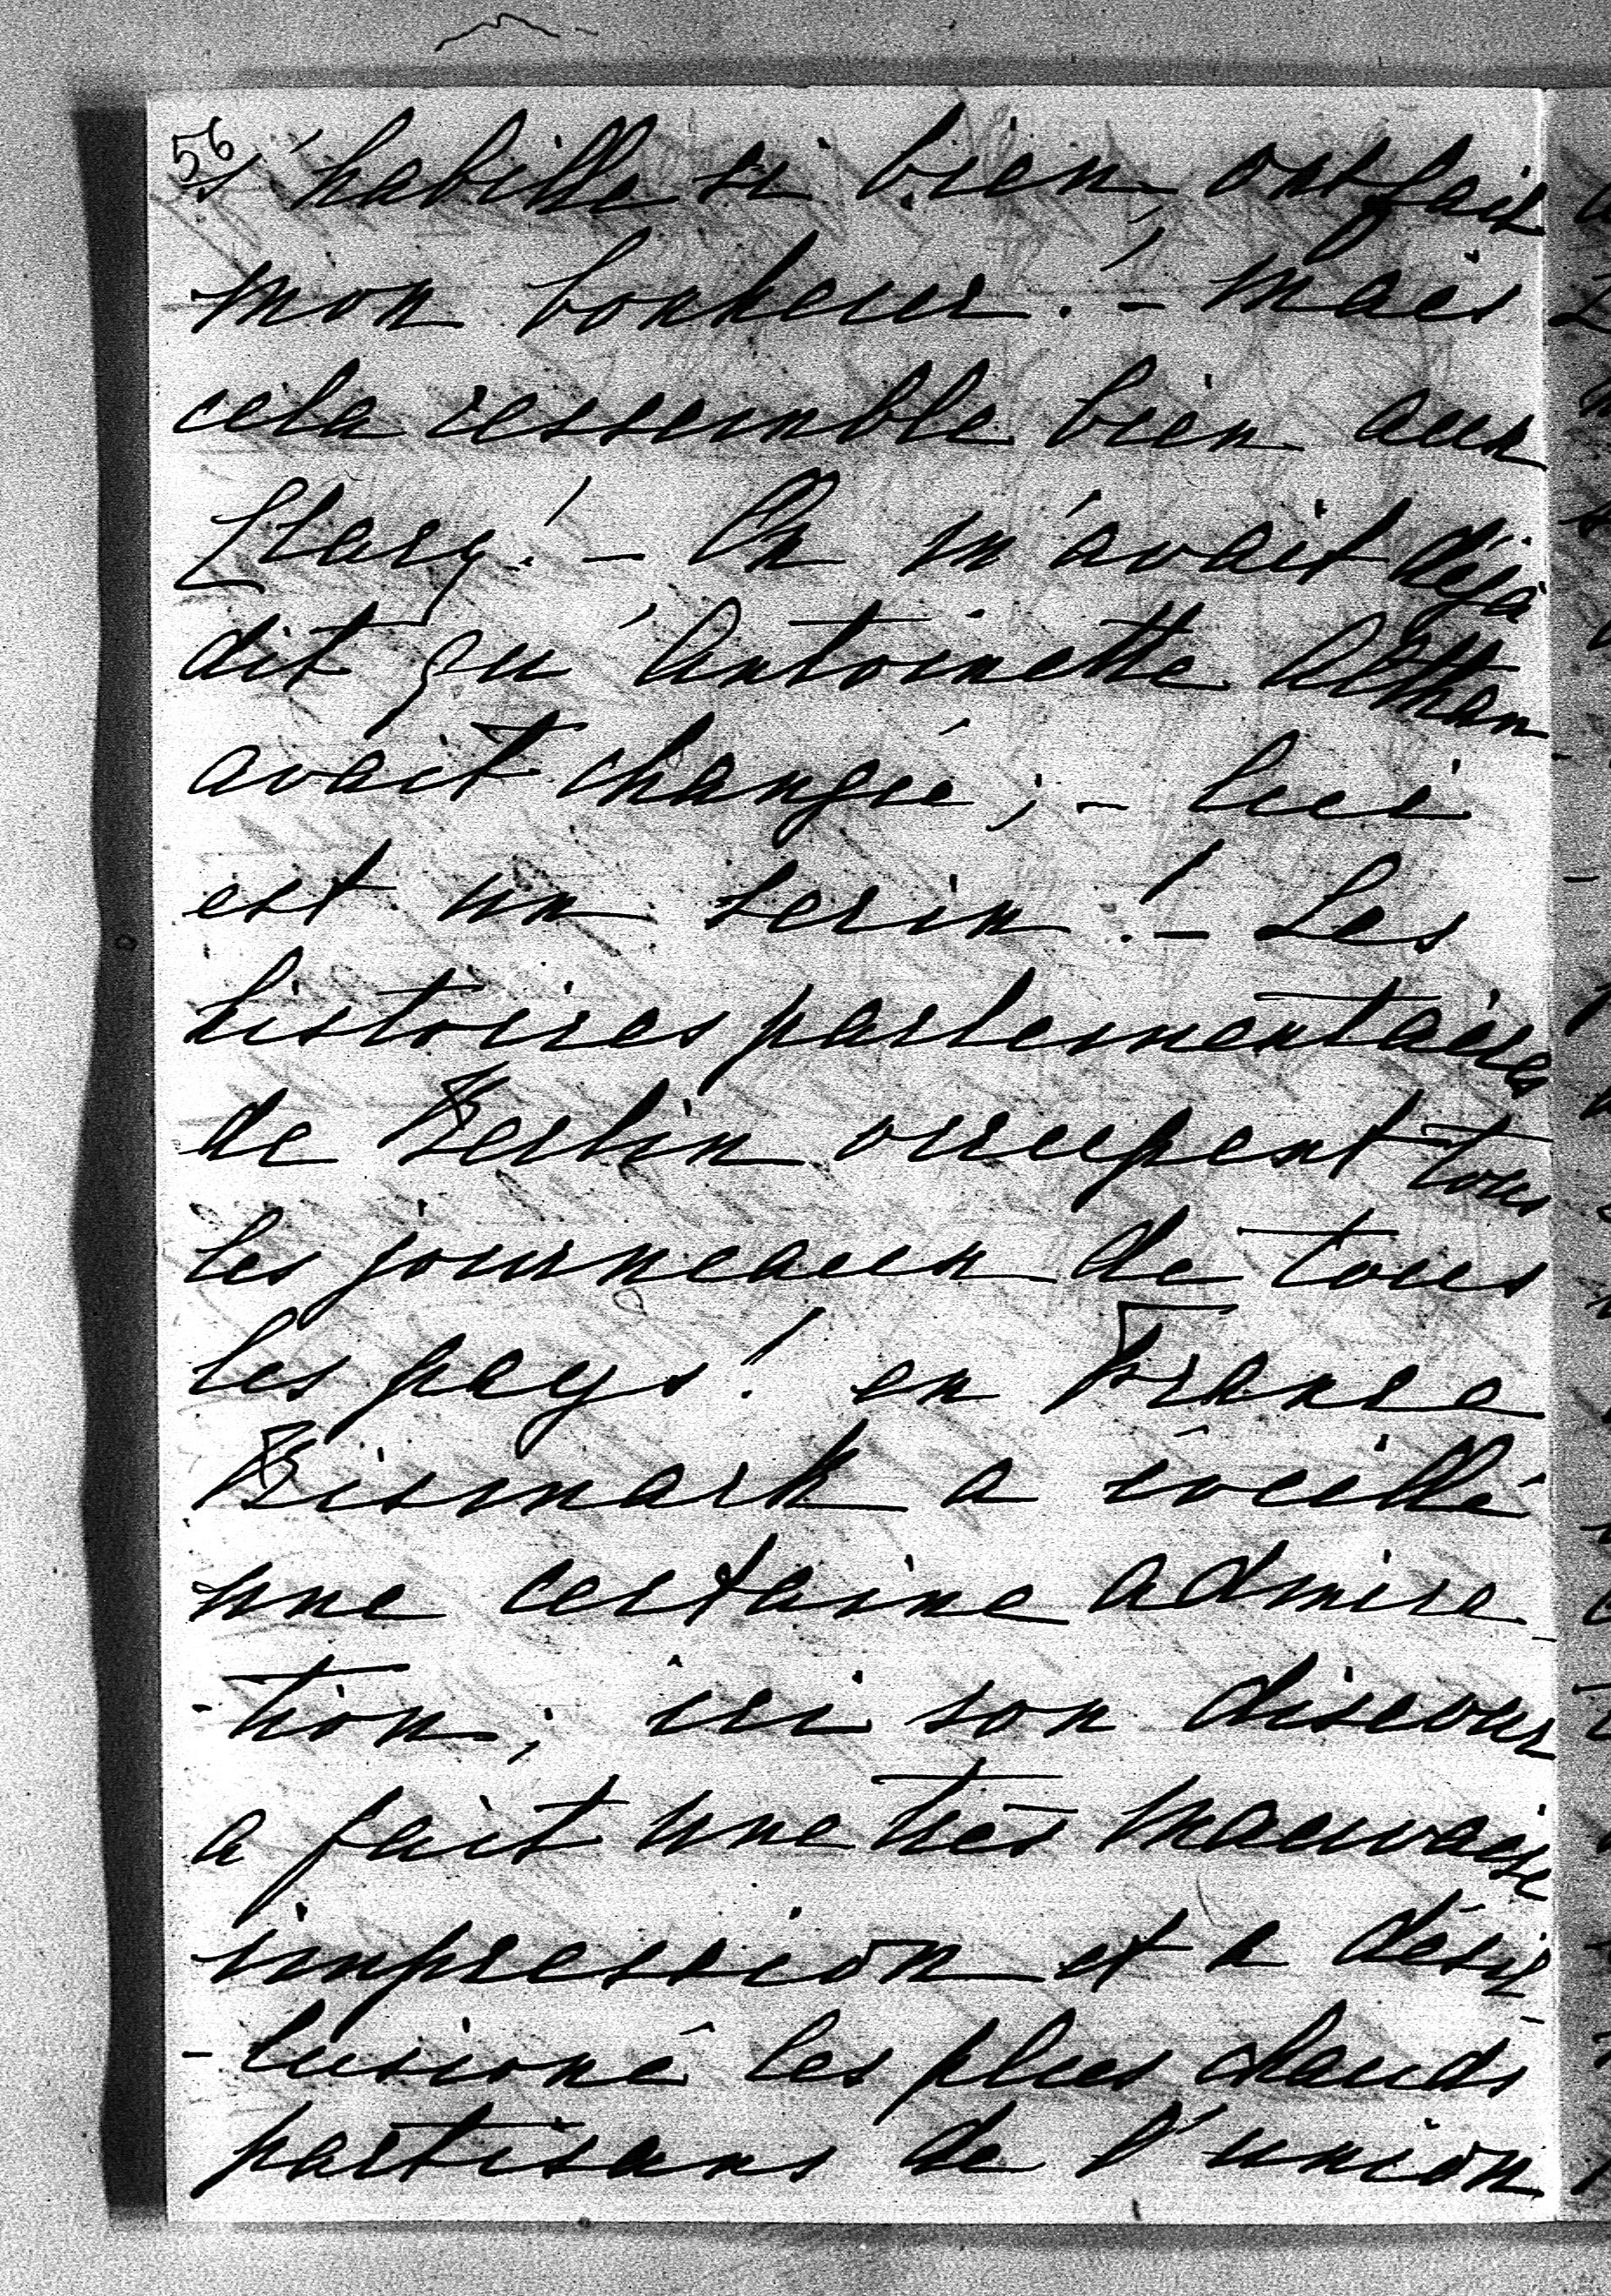 56
s'habille si bien, ont fait
mon bonheur! - Mais
cela ressemble bien aux
Clary! - On m'avait déjà
dit qu'Antoinette Althan
avait changé; - lui
est un serin! - Les
histoires parlementaires
de Berlin occupent tous
les journeaux de tous
les pays! en France
Bismark a éveillé
une certaine admira-
-tion; ici son discours
a fait une très mauvaise
impression et a désil-
-lusioné les plus chauds
partisans de l'union